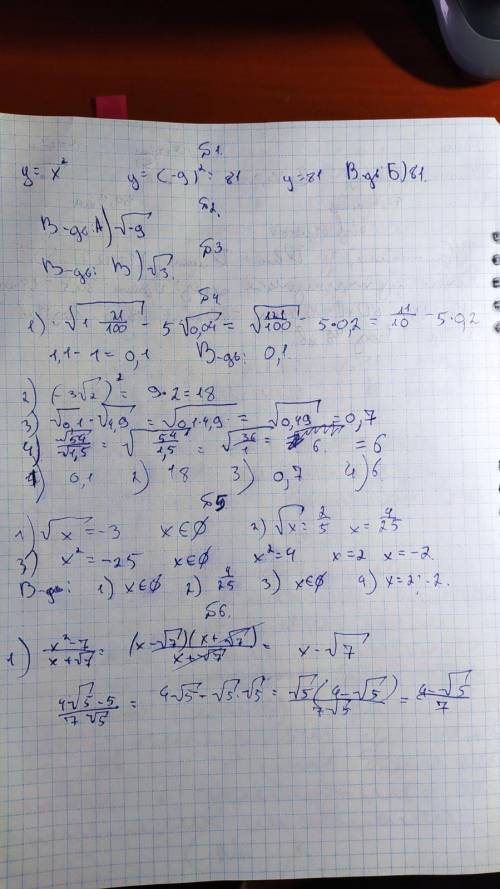 Б1.
y = x²   y = (-9)² = 81   y = 81   В-дь: Б) 81.
Б2.
В-дь: А) √-9
Б3
В-дь: В) √3.
Б4
1) √(1 21/100) - 5·√0,04 = √(121/100) - 5·0,2 = 11/10 - 5·0,2
1,1 - 1 = 0,1   В-дь: 0,1.
2) (3√2)² = 9·2 = 18
3) √0,1·√4,9 = √(0,1·4,9) = √0,49 = 0,7
4) √54/√1,5 = √(54/1,5) = √(36/1) = 6. = 6
1) 0,1   2) 18   3) 0,7   4) 6.
Б5
1) √x = -3   x∈∅   2) √x = 2/5   x = 4/25
3) x² = -25   x∈∅   x² = 4   x = 2   x = -2.
В-дь: 1) x∈∅   2) 4/25   3) x∈∅   4) x = 2; -2.
Б6.
1) (x²-7)/(x+√7) = (x-√7)(x+√7)/(x+√7) = x-√7
(4√5-5)/(7√5) = 4√5 - √5·√5 = √5(4-√5)/(7√5) = (4-√5)/7